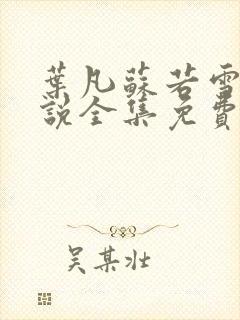 葉凡蘇若雪
說全集免費
吴某壮